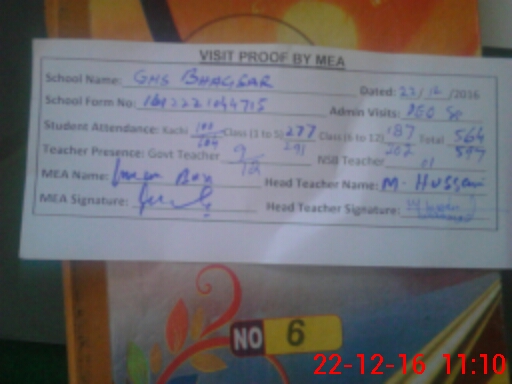 VISIT PROOF BY MEA
School Name: GHS BHAGSAR Dated: 22/12/2016
School Form No: Admin Visits: DEO Se
Student Attendance: Kachi 100 Class (1 to 5) 277/291 Class (6 to 12) 187/202 Total 564/597
Teacher Presence: Govt Teacher 9/12 NSB Teacher
MEA Name: Head Teacher Name: M. Hussain
MEA Signature: Head Teacher Signature:
NO 6
22-12-16 11:10